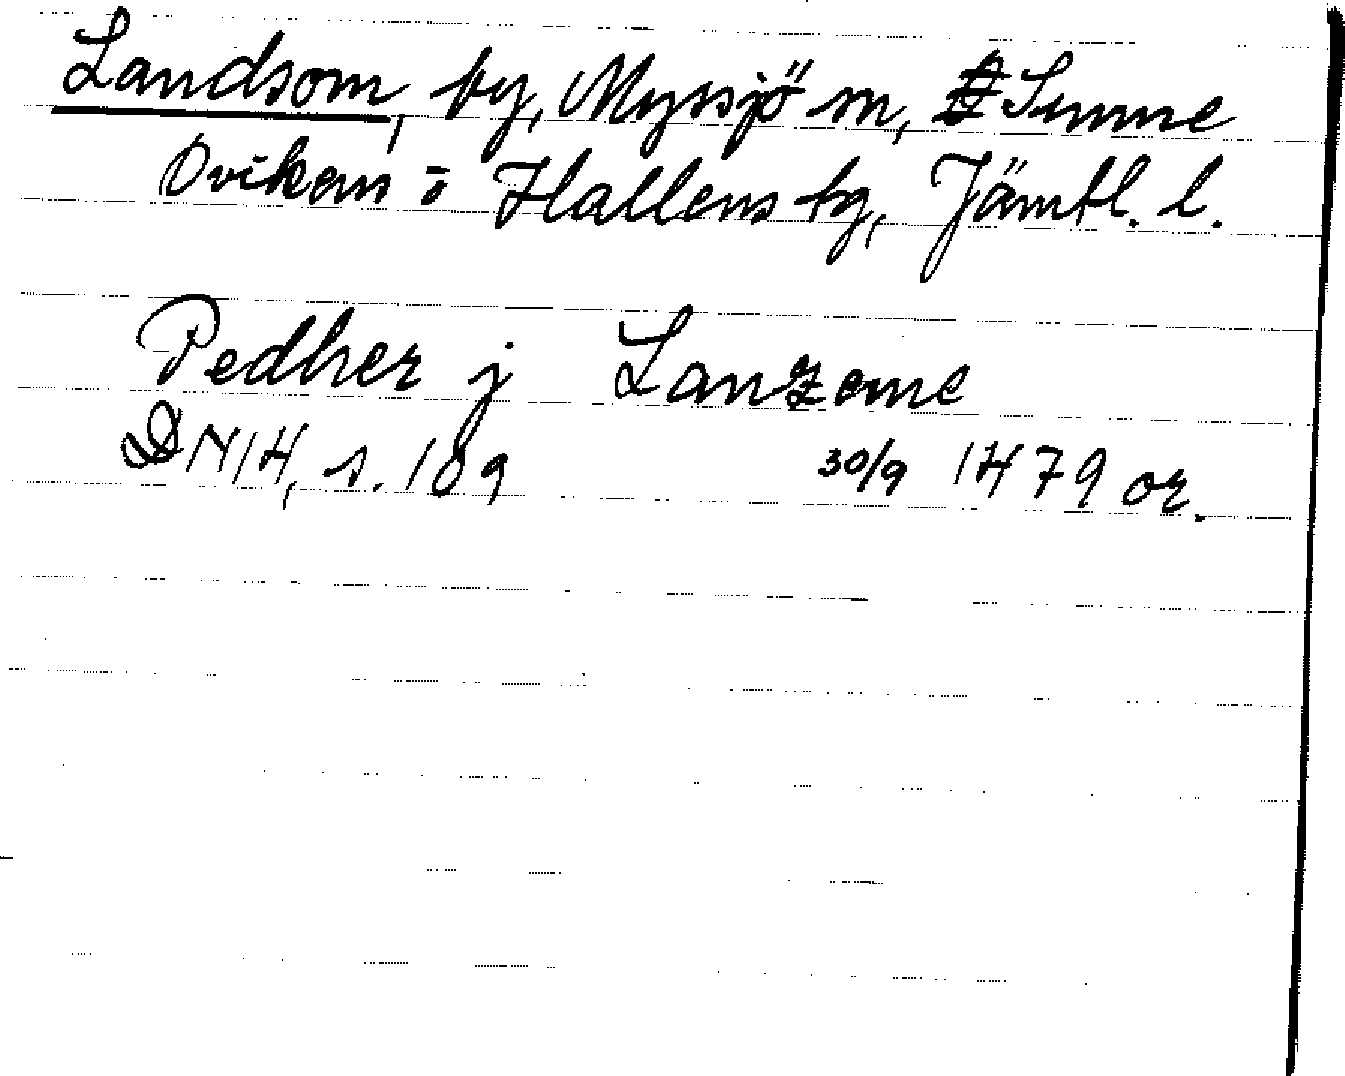 Landsom, by, Myssjö sn, Sunne
Ovikens o Hallens tg, Jämtl. l.
Pedher j Lanzeme
DN 14, s. 109 30/9 1479 or.